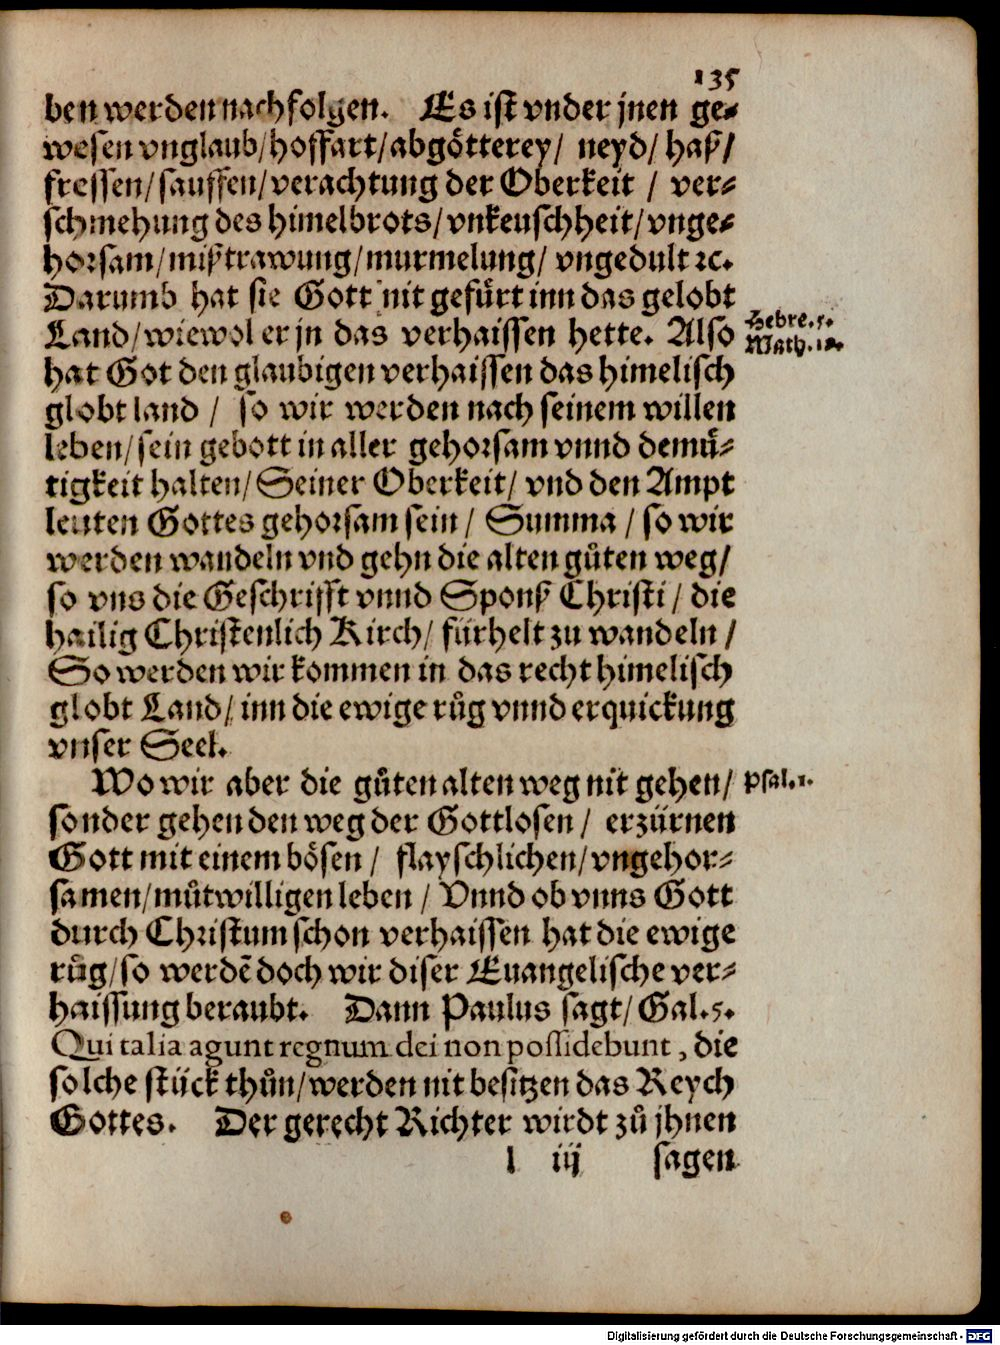 135
ben werden nachfolgen. Es ist vnder jnen ge-
wesen vnglaub/hoffart/abgötterey/ neyd/ haß/
fressen/sauffen/verachtung der Oberkeit / ver-
schmehung des himelbrots/vnkeuschheit/vnge-
horsam/mißtrawung/murmelung/ vngedult ꝛc.
Darumb hat sie Gott nit gefürt inn das gelobt
Land/wiewol er jn das verhaissen hette. Also
Hebre.5.
Math.
hat Got den glaubigen verhaissen das himelisch
globt land / so wir werden nach seinem willen
leben/sein gebott in aller gehorsam vnnd demü-
tigkeit halten/Seiner Oberkeit/ vnd den Ampt
leuten Gottes gehorsam sein / Summa / so wir
werden wandeln vnd gehn die alten gůten weg/
so vns die Geschrifft vnnd Sponß Christi / die
hailig Christenlich Kirch/ fürhelt zu wandeln /
So werden wir kommen in das recht himelisch
globt Land/ inn die ewige růg vnnd erquickung
vnser Seel.
Wo wir aber die gůten alten weg nit gehen/
Psal.1.
sonder gehen den weg der Gottlosen / erzürnen
Gott mit einem bösen / flayschlichen/vngehor-
samen/můtwilligen leben / Vnnd ob vnns Gott
durch Christum schon verhaissen hat die ewige
růg/so werdē doch wir diser Euangelische ver-
haissung beraubt. Dann Paulus sagt/ Gal.5.
Qui talia agunt regnum dei non possidebunt, die
solche stück thůn/werden nit besitzen das Reych
Gottes. Der gerecht Richter wirdt zů jhnen
l iij sagen
Digitalisierung gefördert durch die Deutsche Forschungsgemeinschaft - DFG